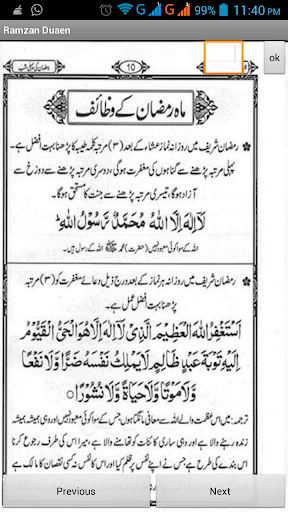 11:40 PM
Ramzan Duaen
ok
10
ماہ رمضان کے وظائف
رمضان شریف میں روزانہ نماز عشاء کے بعد (۳) مرتبہ کلمہ طیبہ کا پڑھنا بہت افضل ہے۔
پہلی مرتبہ پڑھنے سے گناہوں کی مغفرت ہوگی، دوسری مرتبہ پڑھنے سے دوزخ سے
آزاد ہوگا، تیسری مرتبہ پڑھنے سے جنت کا مستحق ہوگا۔
لَآ اِلٰهَ اِلَّا اللّٰهُ مُحَمَّدٌ رَّسُوْلُ اللّٰهِ
اللہ کے سوا کوئی معبود نہیں (حضرت) محمد ﷺ اللہ کے رسول ہیں۔
رمضان شریف میں روزانہ ہر نماز کے بعد درج ذیل دعائے مغفرت کو (۳) مرتبہ
پڑھنا بہت افضل عمل ہے۔
اَسْتَغْفِرُ اللّٰهَ الْعَظِيْمَ الَّذِيْ لَآ اِلٰهَ اِلَّا هُوَ الْحَيُّ الْقَيُّوْمُ
اِلَيْهِ تَوْبَةَ عَبْدٍ ظَالِمٍ لَّا يَمْلِكُ نَفْسَهٗ ضَرًّا وَّلَا نَفْعًا
وَّلَا مَوْتًا وَّلَا حَيَاةً وَّلَا نُشُوْرًا
ترجمہ: میں اس عظمت والے اللہ سے معافی مانگتا ہوں جس کے سوا کوئی معبود نہیں، وہی ہمیشہ ہمیشہ
زندہ رہنے والا ہے اور وہی ساری کائنات کو تھامنے والا ہے، میرا اس کی طرف رجوع کرنا
اس بندے کی طرح ہے جس نے اپنے نفس پر ظلم کیا اور اس کا نفس نہ کسی نقصان کا مالک ہے
Previous
Next